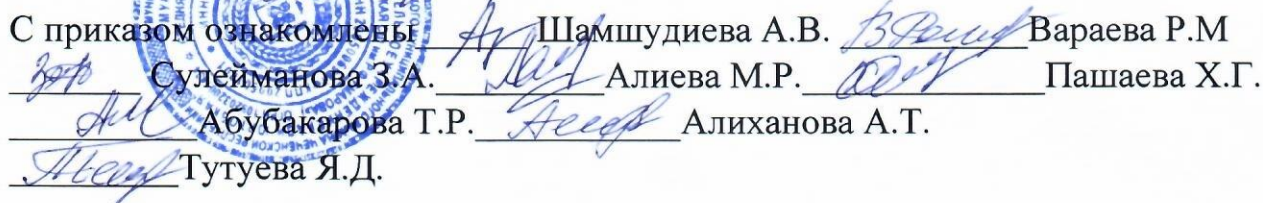 С приказом ознакомлены ______ Шамшудиева А.В. ___________Вараева Р.М
________ Сулейманова З.А.__________Алиева М.Р.______________Пашаева Х.Г.
___________Абубакарова Т.Р.____________ Алиханова А.Т.
__________Тутуева Я.Д.